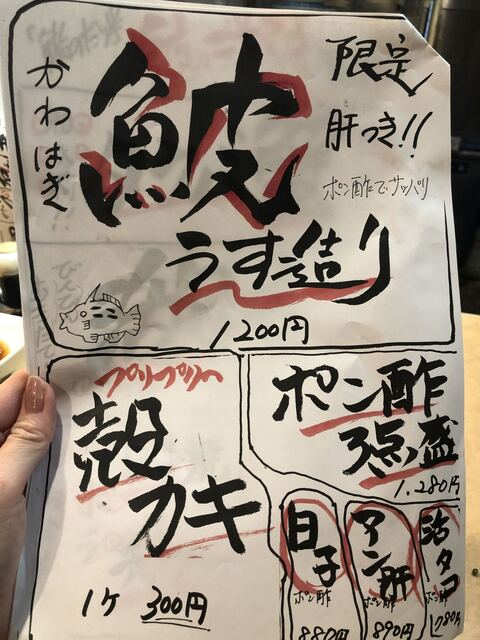 限定
肝つき!!
ポン酢でサッパリ
かわはぎ
鮍
うす造り
1200円
プリップリ〜
殻
カキ
1ケ 300円
ポン酢
3点盛
1,280円
白子
ポン酢
880円
アン肝
ポン酢
890円
活タコ
ポン酢
780円